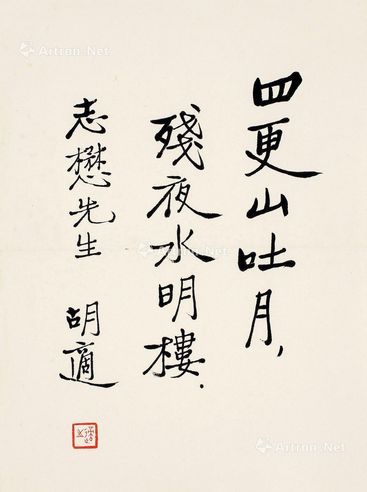 四更山吐月,
殘夜水明樓.
志懋先生 胡適
Artron.Net
Artron.Net